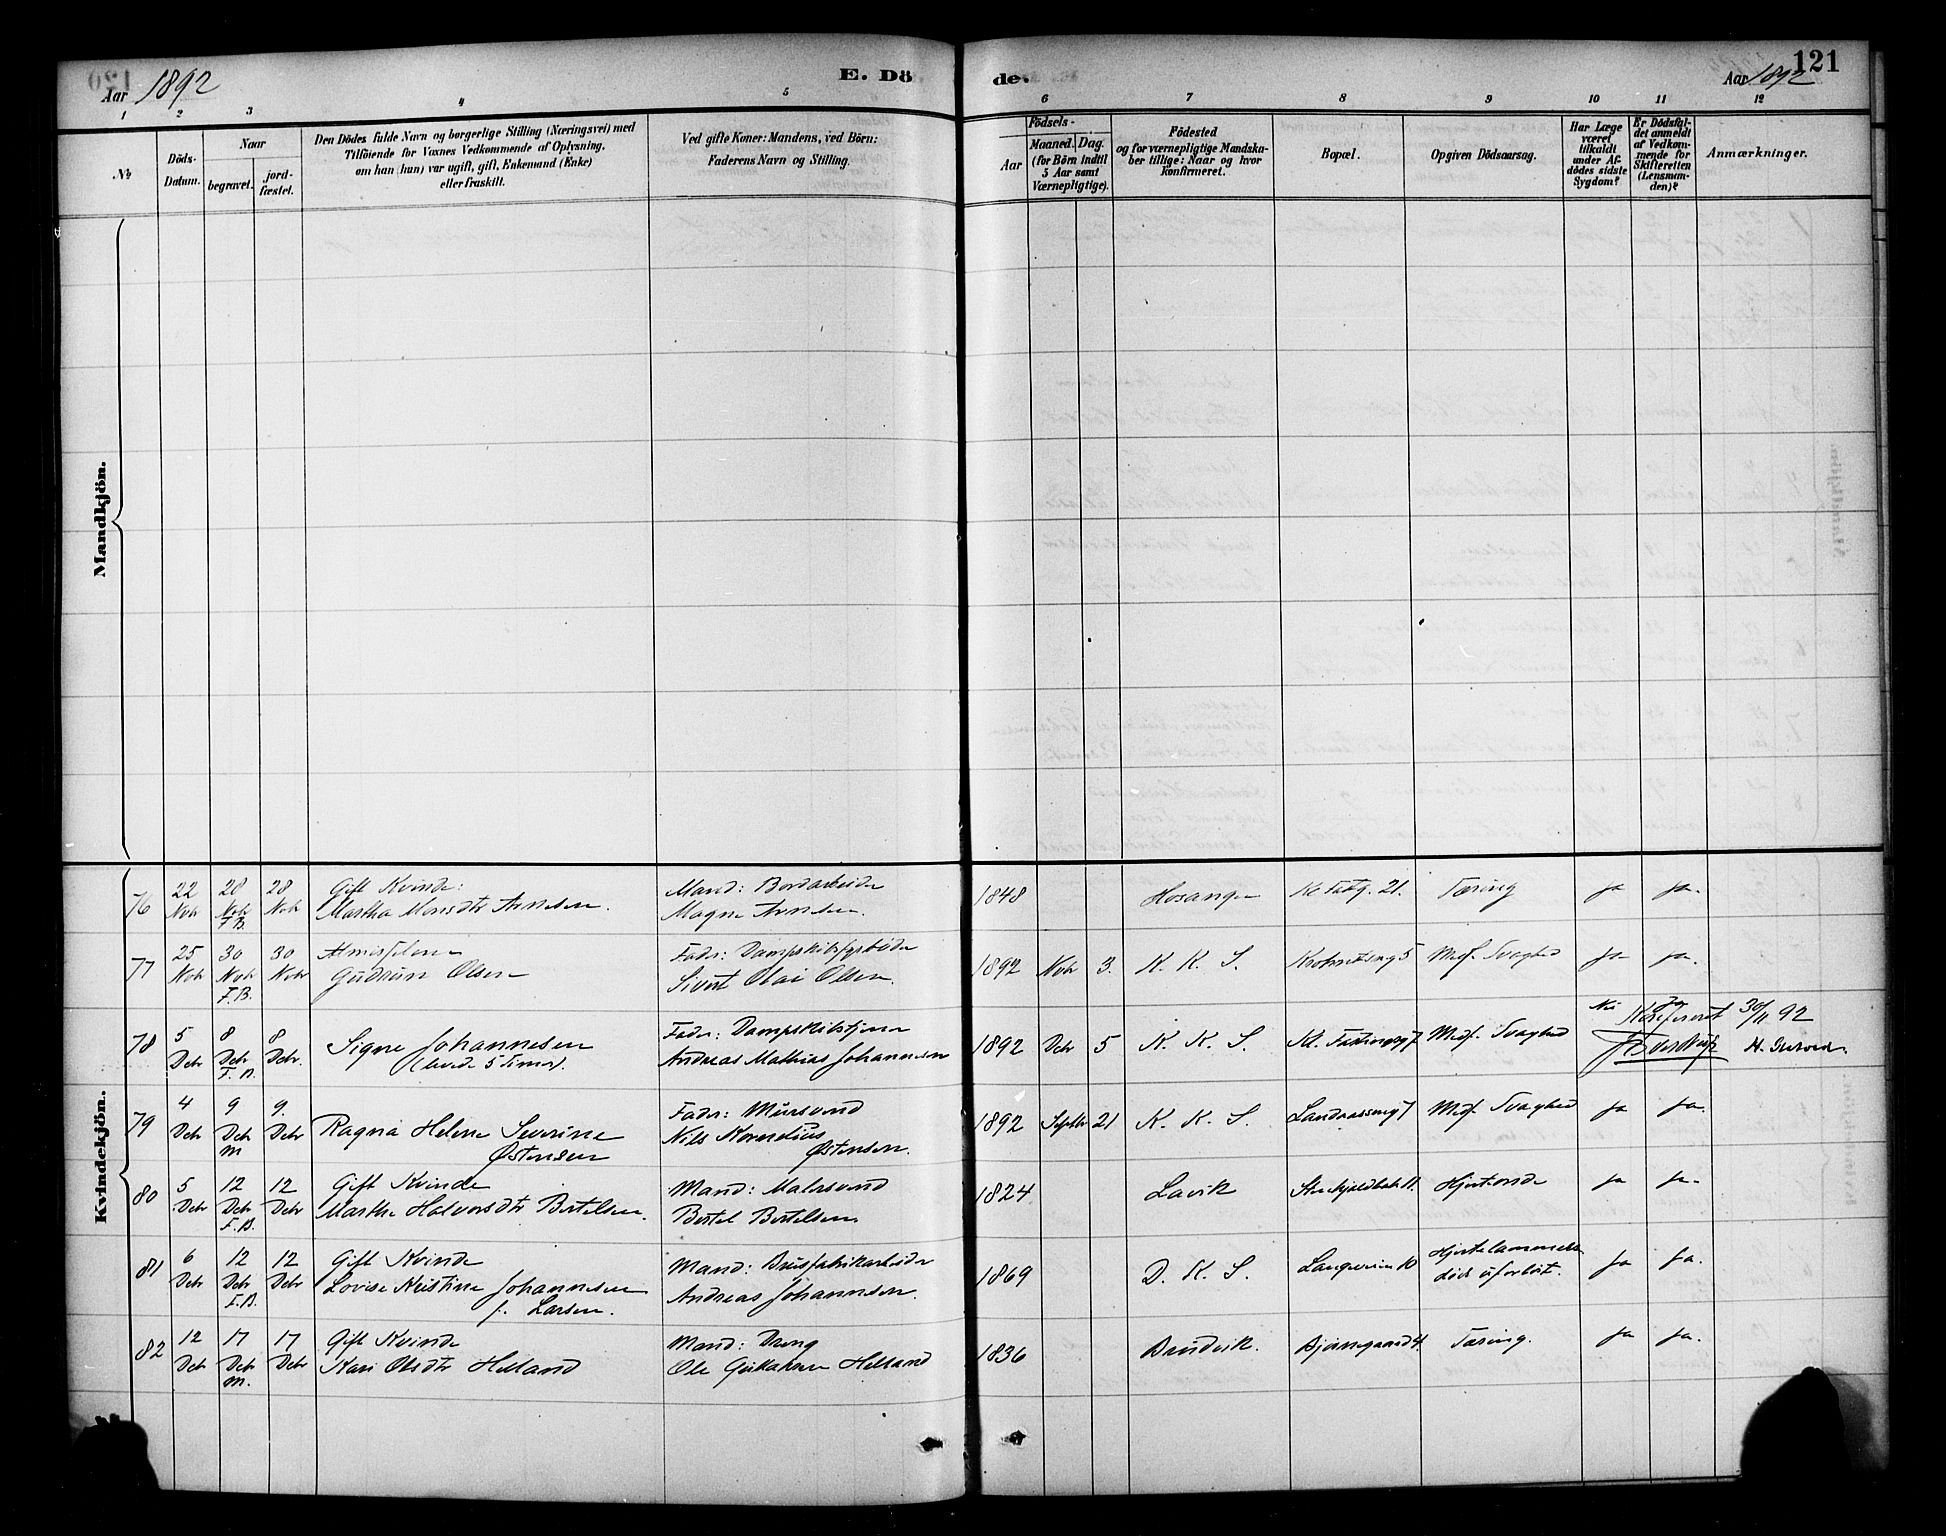 Aar 1892
E. Dö
de.
Aar 1892
121
1 2 3 4 5 6 7 8 9 10 11 12
No
Döds-
Datum.
Naar
begravet.
jord-
fæstet.
Den Dödes fulde Navn og borgerlige Stilling (Næringsvei) med
Tilföiende for Voxnes Vedkommende af Oplysning,
om han (hun) var ugift, gift, Enkemand (Enke)
eller fraskilt.
Ved gifte Koner: Mandens, ved Börn:
Faderens Navn og Stilling.
Födsels-
Aar
Maaned. Dag.
(for Börn indtil
5 Aar samt
Værnepligtige).
Födested
og for værnepligtige Mandska-
ber tillige: Naar og hvor
konfirmeret.
Bopæl.
Opgiven Dödsaarsag.
Har Læge
været
tilkaldt
under Af-
dödes sidste
Sygdom?
Er Dödsfal-
det anmeldt
af Vedkom-
mende for
Skifteretten
(Lensman-
den)?
Anmærkninger.
Mandkjön.
Kvindekjön.
76
22 Novbr
28 Novbr F.B.
28 Novbr
Gift Kvinde:
Martha Monsdtr Arnesen.
Mand: Bordarbeider
Magne Arnesen.
1848
Hosanger
21.
Tæring
ja
ja.
77
25 Novbr
30 Novbr F.B.
30 Novbr
Gudrun Olsen
Fader: Dampskibsfyrböder
Sivert Olai Olsen.
1892 Novbr 3.
K. K. S.
5
Medf. Svaghed
ja
ja.
78
5 Debr
8 Debr F.B.
8 Debr.
Signe Johannesen
(levede 5 Timer).
Fader: Dampskibs
Andreas Mathias Johannesen
1892 Debr 5
K. K. S.
Medf. Svaghed
Nei
ja
30/11 92
79
4 Debr
9 Debr M
9. Debr
Ragna Helene Severine
Østensen
Fader: Mursvend
Nils Kornelius
Østensen.
1892 Septbr 21
K. K. S.
Medf. Svaghed
ja
ja.
80
5 Debr
12 Debr F.B.
12 Debr
Gift Kvinde
Martha Halvorsdtr Bertelsen.
Mand: Malersvend
Bertel Bertelsen
1824
Lavik
Hjerteonde
ja
ja.
81
6 Debr
12 Debr F.B.
12 Debr
Gift Kvinde
Lovise Kristine Johannesen
f. Larsen.
Mand: Brusfabrikarbeider
Andreas Johannesen.
1869
D. K. S.
Hjertelammelse
död uforlöst.
ja
ja.
82
12 Debr
17 Debr M.
17 Debr
Gift Kvinde
Kari Olsdtr Helland
Mand: Dreng
Ole Helland
1836
Bruvik.
Bjørnegaard 4.
Tæring.
ja
ja.